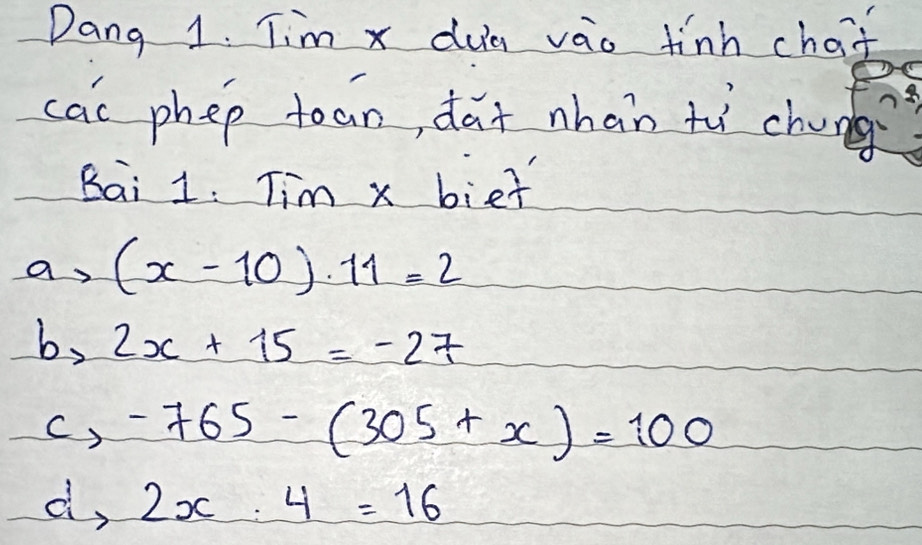 Dạng 1: Tìm x dựa vào tính chất
các phép toán, đặt nhân tử chung
Bài 1: Tìm x biết
a, (x - 10) . 11 = 2
b, 2x + 15 = -27
c, -765 - (305 + x) = 100
d, 2x : 4 = 16